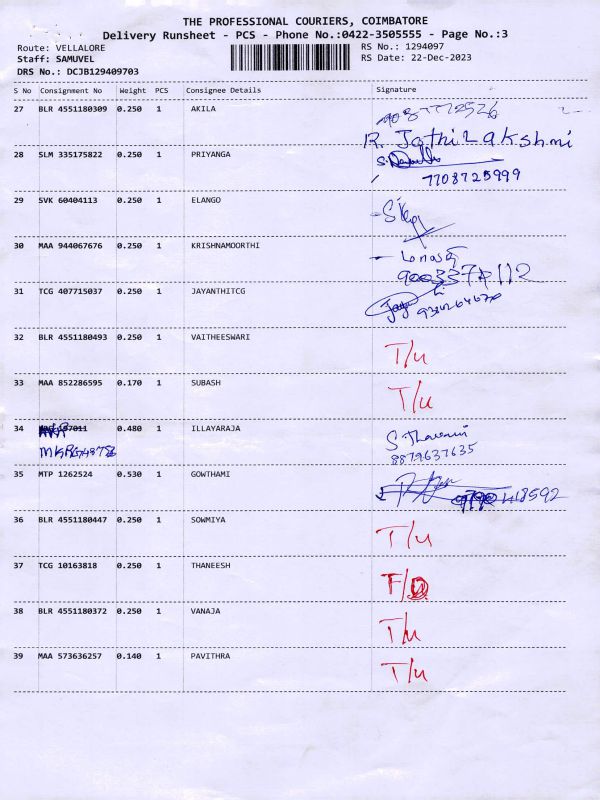 THE PROFESSIONAL COURIERS, COIMBATORE
Delivery Runsheet - PCS - Phone No.:0422-3505555 - Page No.:3
Route: VELLALORE RS No.: 1294097
Staff: SAMUVEL RS Date: 22-Dec-2023
DRS No.: DCJB129409703
S No Consignment No Weight PCS Consignee Details Signature
27 BLR 4551180309 0.250 1 AKILA
R. JothiLakshmi
28 SLM 335175822 0.250 1 PRIYANGA
7708725999
29 SVK 60404113 0.250 1 ELANGO
30 MAA 944067676 0.250 1 KRISHNAMOORTHI
31 TCG 407715037 0.250 1 JAYANTHITCG
32 BLR 4551180493 0.250 1 VAITHEESWARI T/u
33 MAA 852286595 0.170 1 SUBASH T/u
34 0.480 1 ILLAYARAJA
8879637635
35 MTP 1262524 0.530 1 GOWTHAMI
36 BLR 4551180447 0.250 1 SOWMIYA T/u
37 TCG 10163818 0.250 1 THANEESH
38 BLR 4551180372 0.250 1 VANAJA T/u
39 MAA 573636257 0.140 1 PAVITHRA T/u